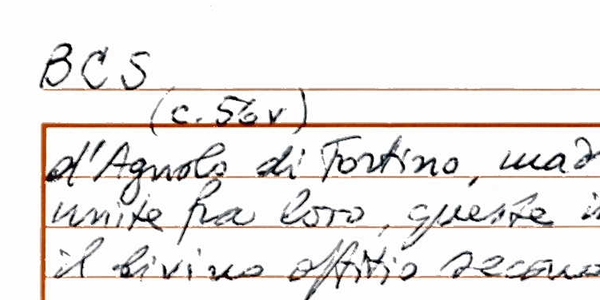 BCS
(c. 56v)
d'Agnolo di Fortino, mad
unite fra loro, queste i
il divino offitio secono